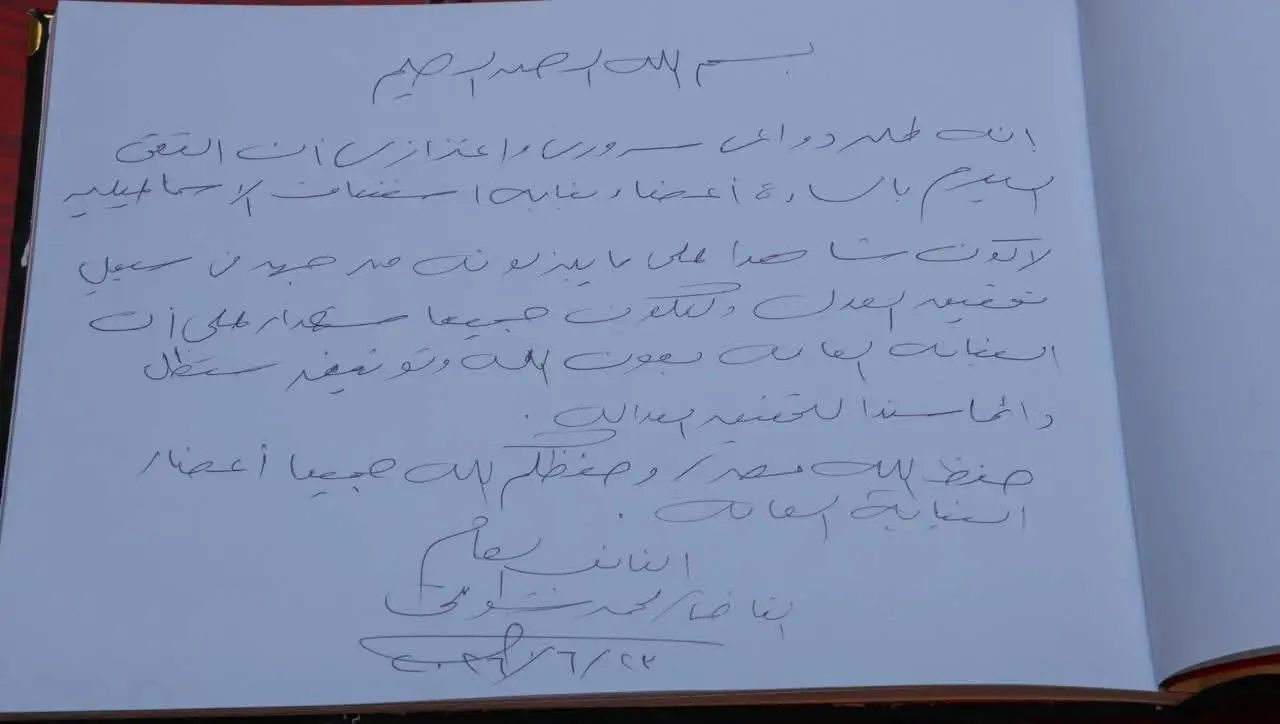 بسم الله الرحمن الرحيم
إنه لمن دواعى سرورى واعتزازى أن التقى
اليوم بالسادة أعضاء نيابة استئناف الإسماعيلية
لأكون شاهدا على ما يبذلونه من جهد فى سبيل
تحقيق العدل ولنكون جميعا شهداء على أن
النيابة العامة بعون الله وتوفيقه ستظل
دائما سندا لتحقيق العدالة .
حفظ الله مصر / وحفظكم الله جميعا أعضاء
النيابة العامة .
النائب العام
القاضى / محمد شوقى
٢٠٢٦/٦/٢٣